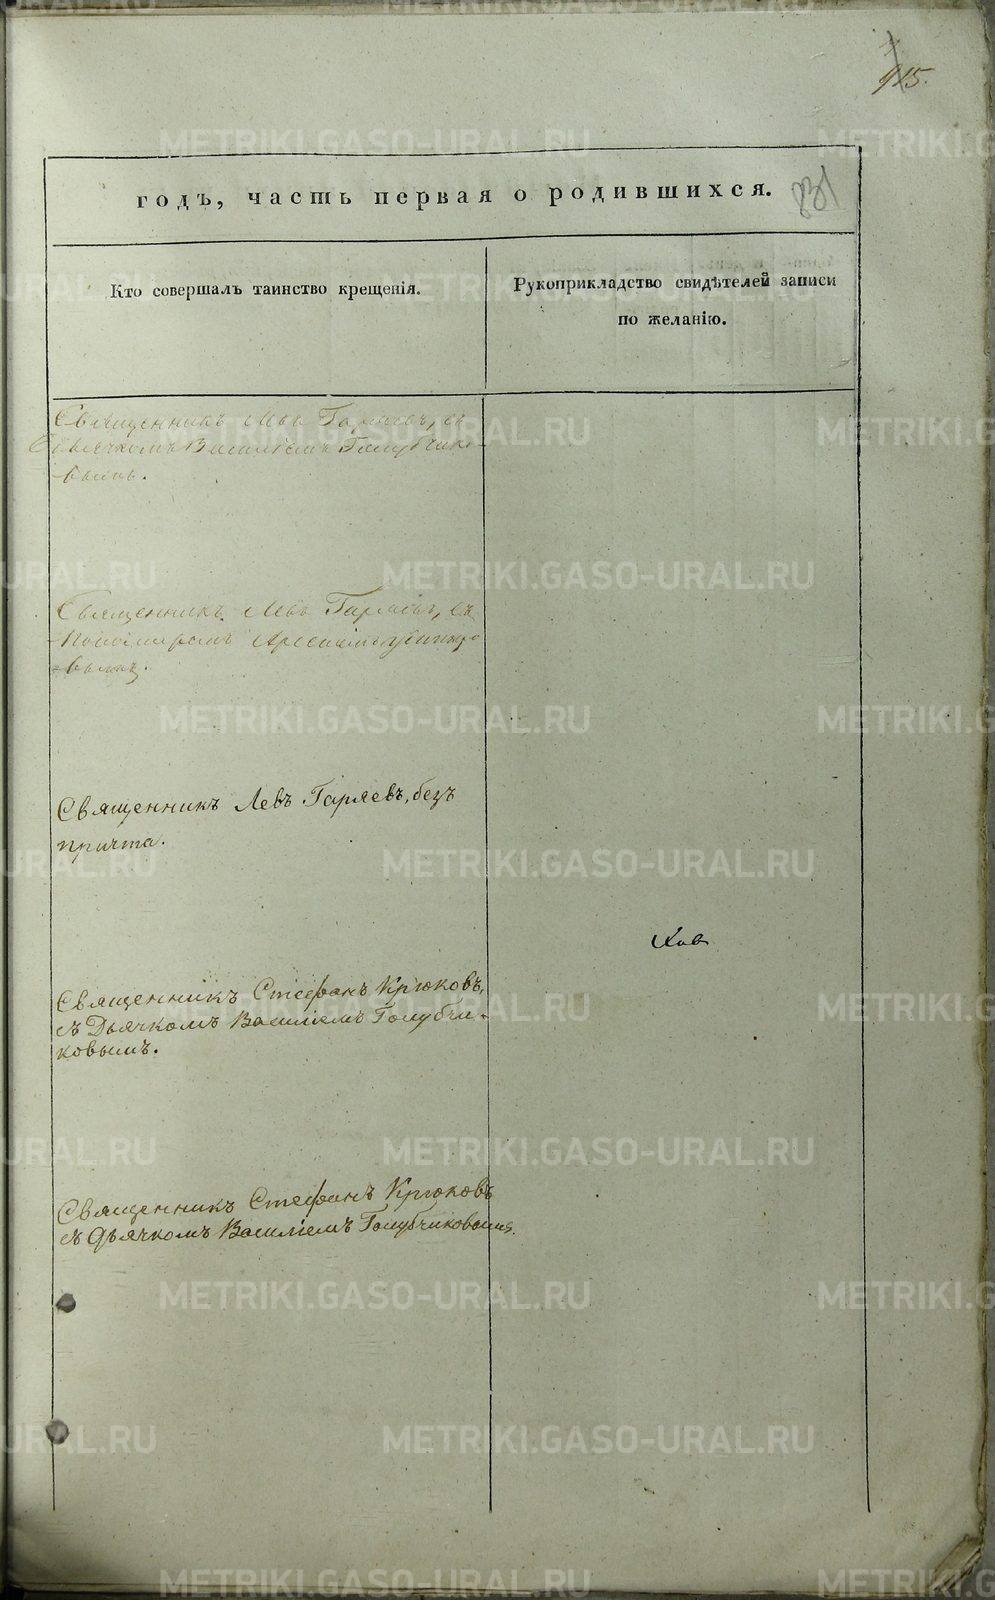 115.
годъ, часть первая о родившихся.
831
Кто совершалъ таинство крещенія.
Рукоприкладство свидѣтелей записи
по желанію.
Священникъ Левъ Гаряевъ, съ
Дьячкомъ Василіемъ Голубчико-
вымъ.
Священникъ Левъ Гаряевъ, съ
Пономаремъ
вымъ.
Священникъ Левъ Гаряевъ, безъ
причта.
Священникъ Стефанъ Крюковъ,
съ Дьячкомъ Василіемъ Голубчи-
ковымъ.
Священникъ Стефанъ Крюковъ
съ Дьячкомъ Василіемъ Голубчиковымъ.
METRIKI.GASO-URAL.RU